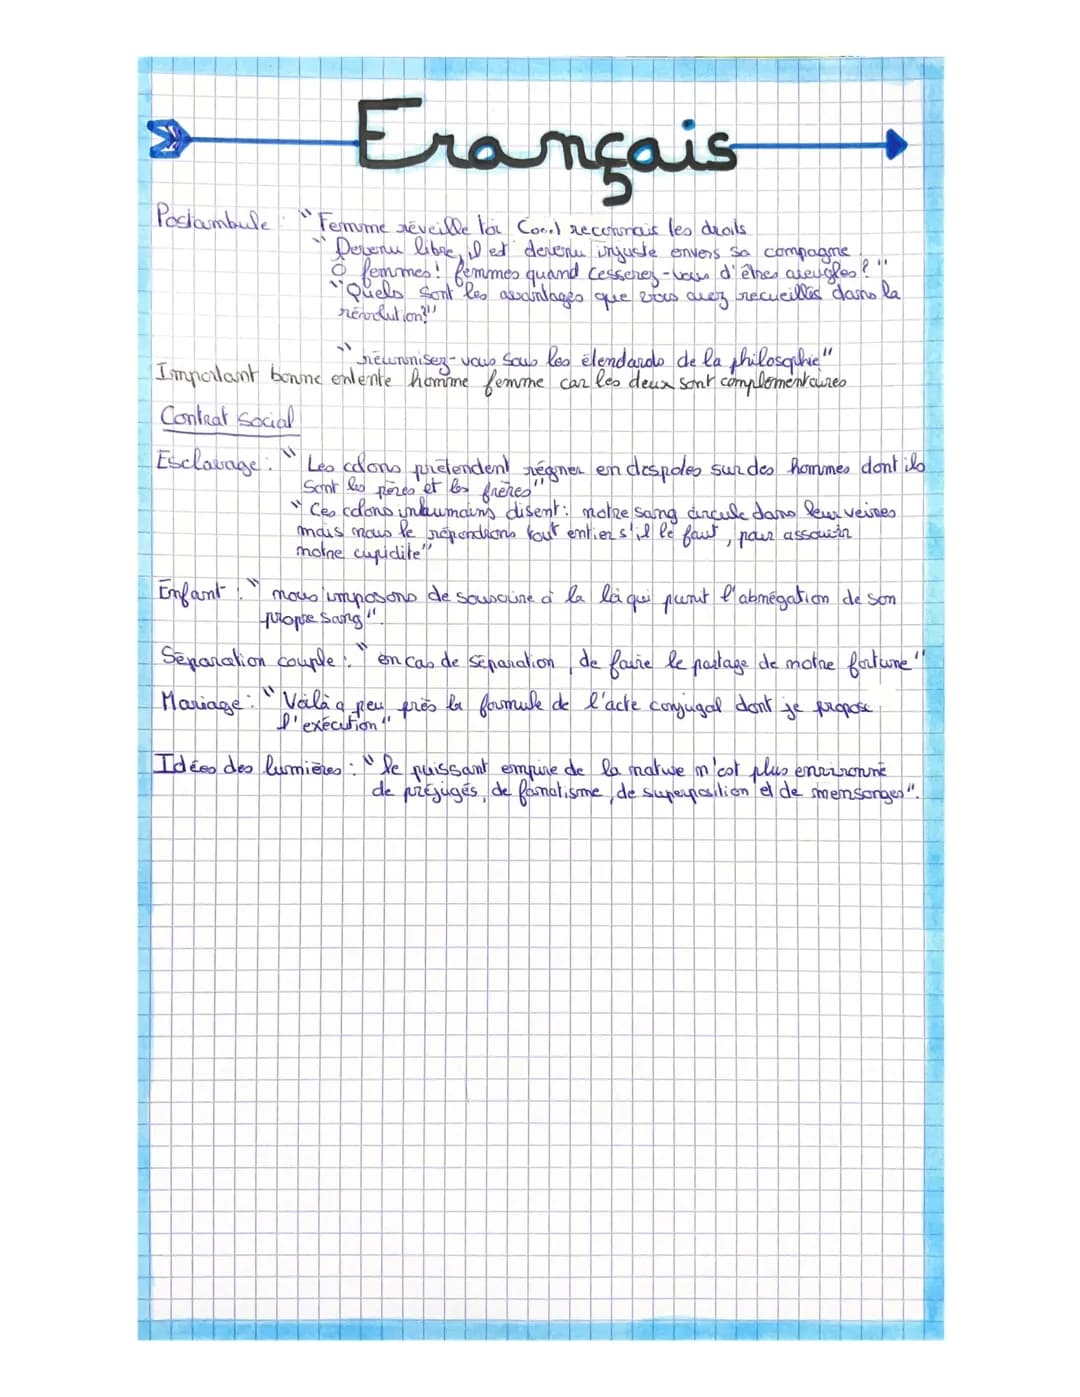 Français
Postambule : "Femme réveille toi (...) reconnais les droits
"Devenu libre, il est devenu injuste envers sa compagne
Ô femmes! femmes quand cesserez-vous d'êtres aveugles ?"
"Quels sont les avantages que vous avez recueillis dans la
révolution?"
"réunnisez-vous sous les étendards de la philosophie"
Important bonne entente homme femme car les deux sont complémentaires
Contrat social
Esclavage : "Les colons prétendent régner en despotes sur des hommes dont ils
sont les pères et les frères"
"Ces colons inhumains disent : notre sang circule dans leur veines
mais nous le répendrons tout entier s'il le faut, pour assouvir
notre cupidité"
Enfant : "nous imposons de souscrire à la loi qui punit l'abnégation de son
propre sang".
Séparation couple : "en cas de séparation, de faire le partage de notre fortune"
Mariage : "Voilà a peu près la formule de l'acte conjugal dont je propose
l'exécution"
Idées des lumières : "le puissant empire de la nature n'est plus environné
de préjugés, de fanatisme, de superposition et de mensonges".